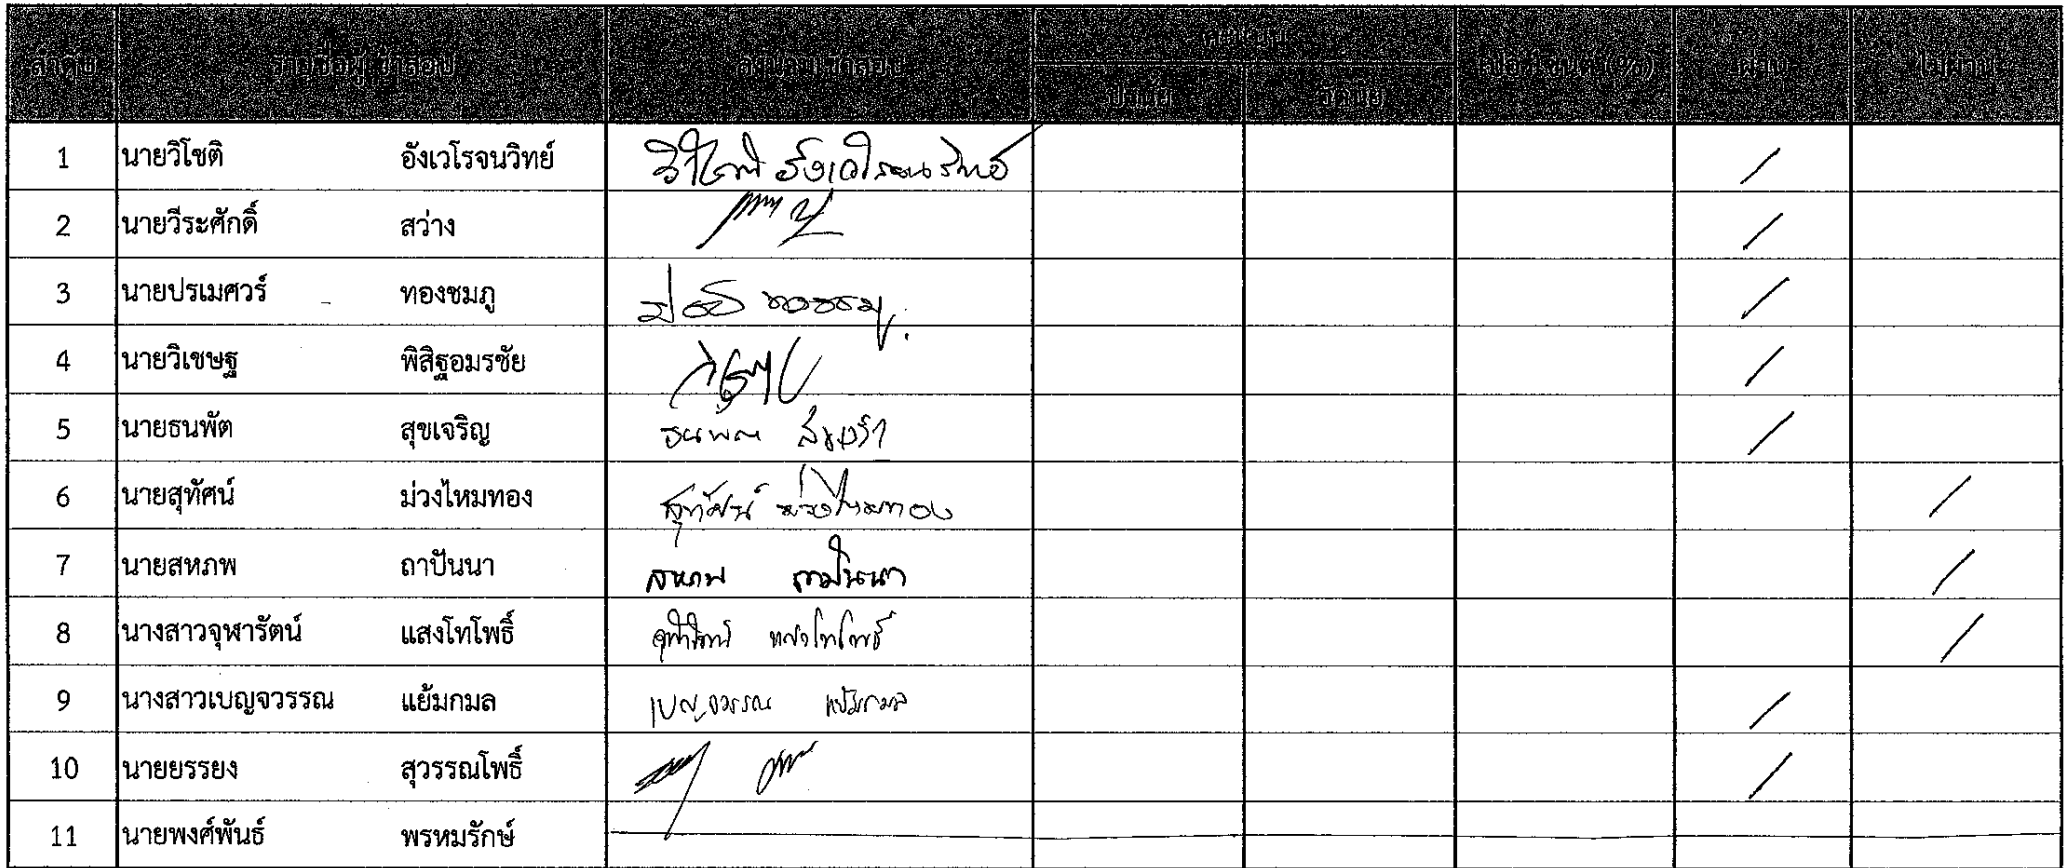 ลำดับ รายชื่อผู้เข้าสอบ ลงนามเข้าสอบ คะแนน เปอร์เซนต์ (%) ผ่าน ไม่ผ่าน
ปรนัย อัตนัย
1 นายวิโชติ อังเวโรจนวิทย์ วิโชติ อังเวโรจนวิทย์
2 นายวีระศักดิ์ สว่าง
3 นายปรเมศวร์ ทองชมภู
4 นายวิเชษฐ พิสิฐอมรชัย
5 นายธนพัต สุขเจริญ ธนพัต
6 นายสุทัศน์ ม่วงไหมทอง สุทัศน์ ม่วงไหมทอง
7 นายสหภพ ถาปันนา สหภพ ถาปันนา
8 นางสาวจุฬารัตน์ แสงโทโพธิ์ จุฬารัตน์ แสงโทโพธิ์
9 นางสาวเบญจวรรณ แย้มกมล เบญจวรรณ แย้มกมล
10 นายยรรยง สุวรรณโพธิ์
11 นายพงศ์พันธ์ พรหมรักษ์